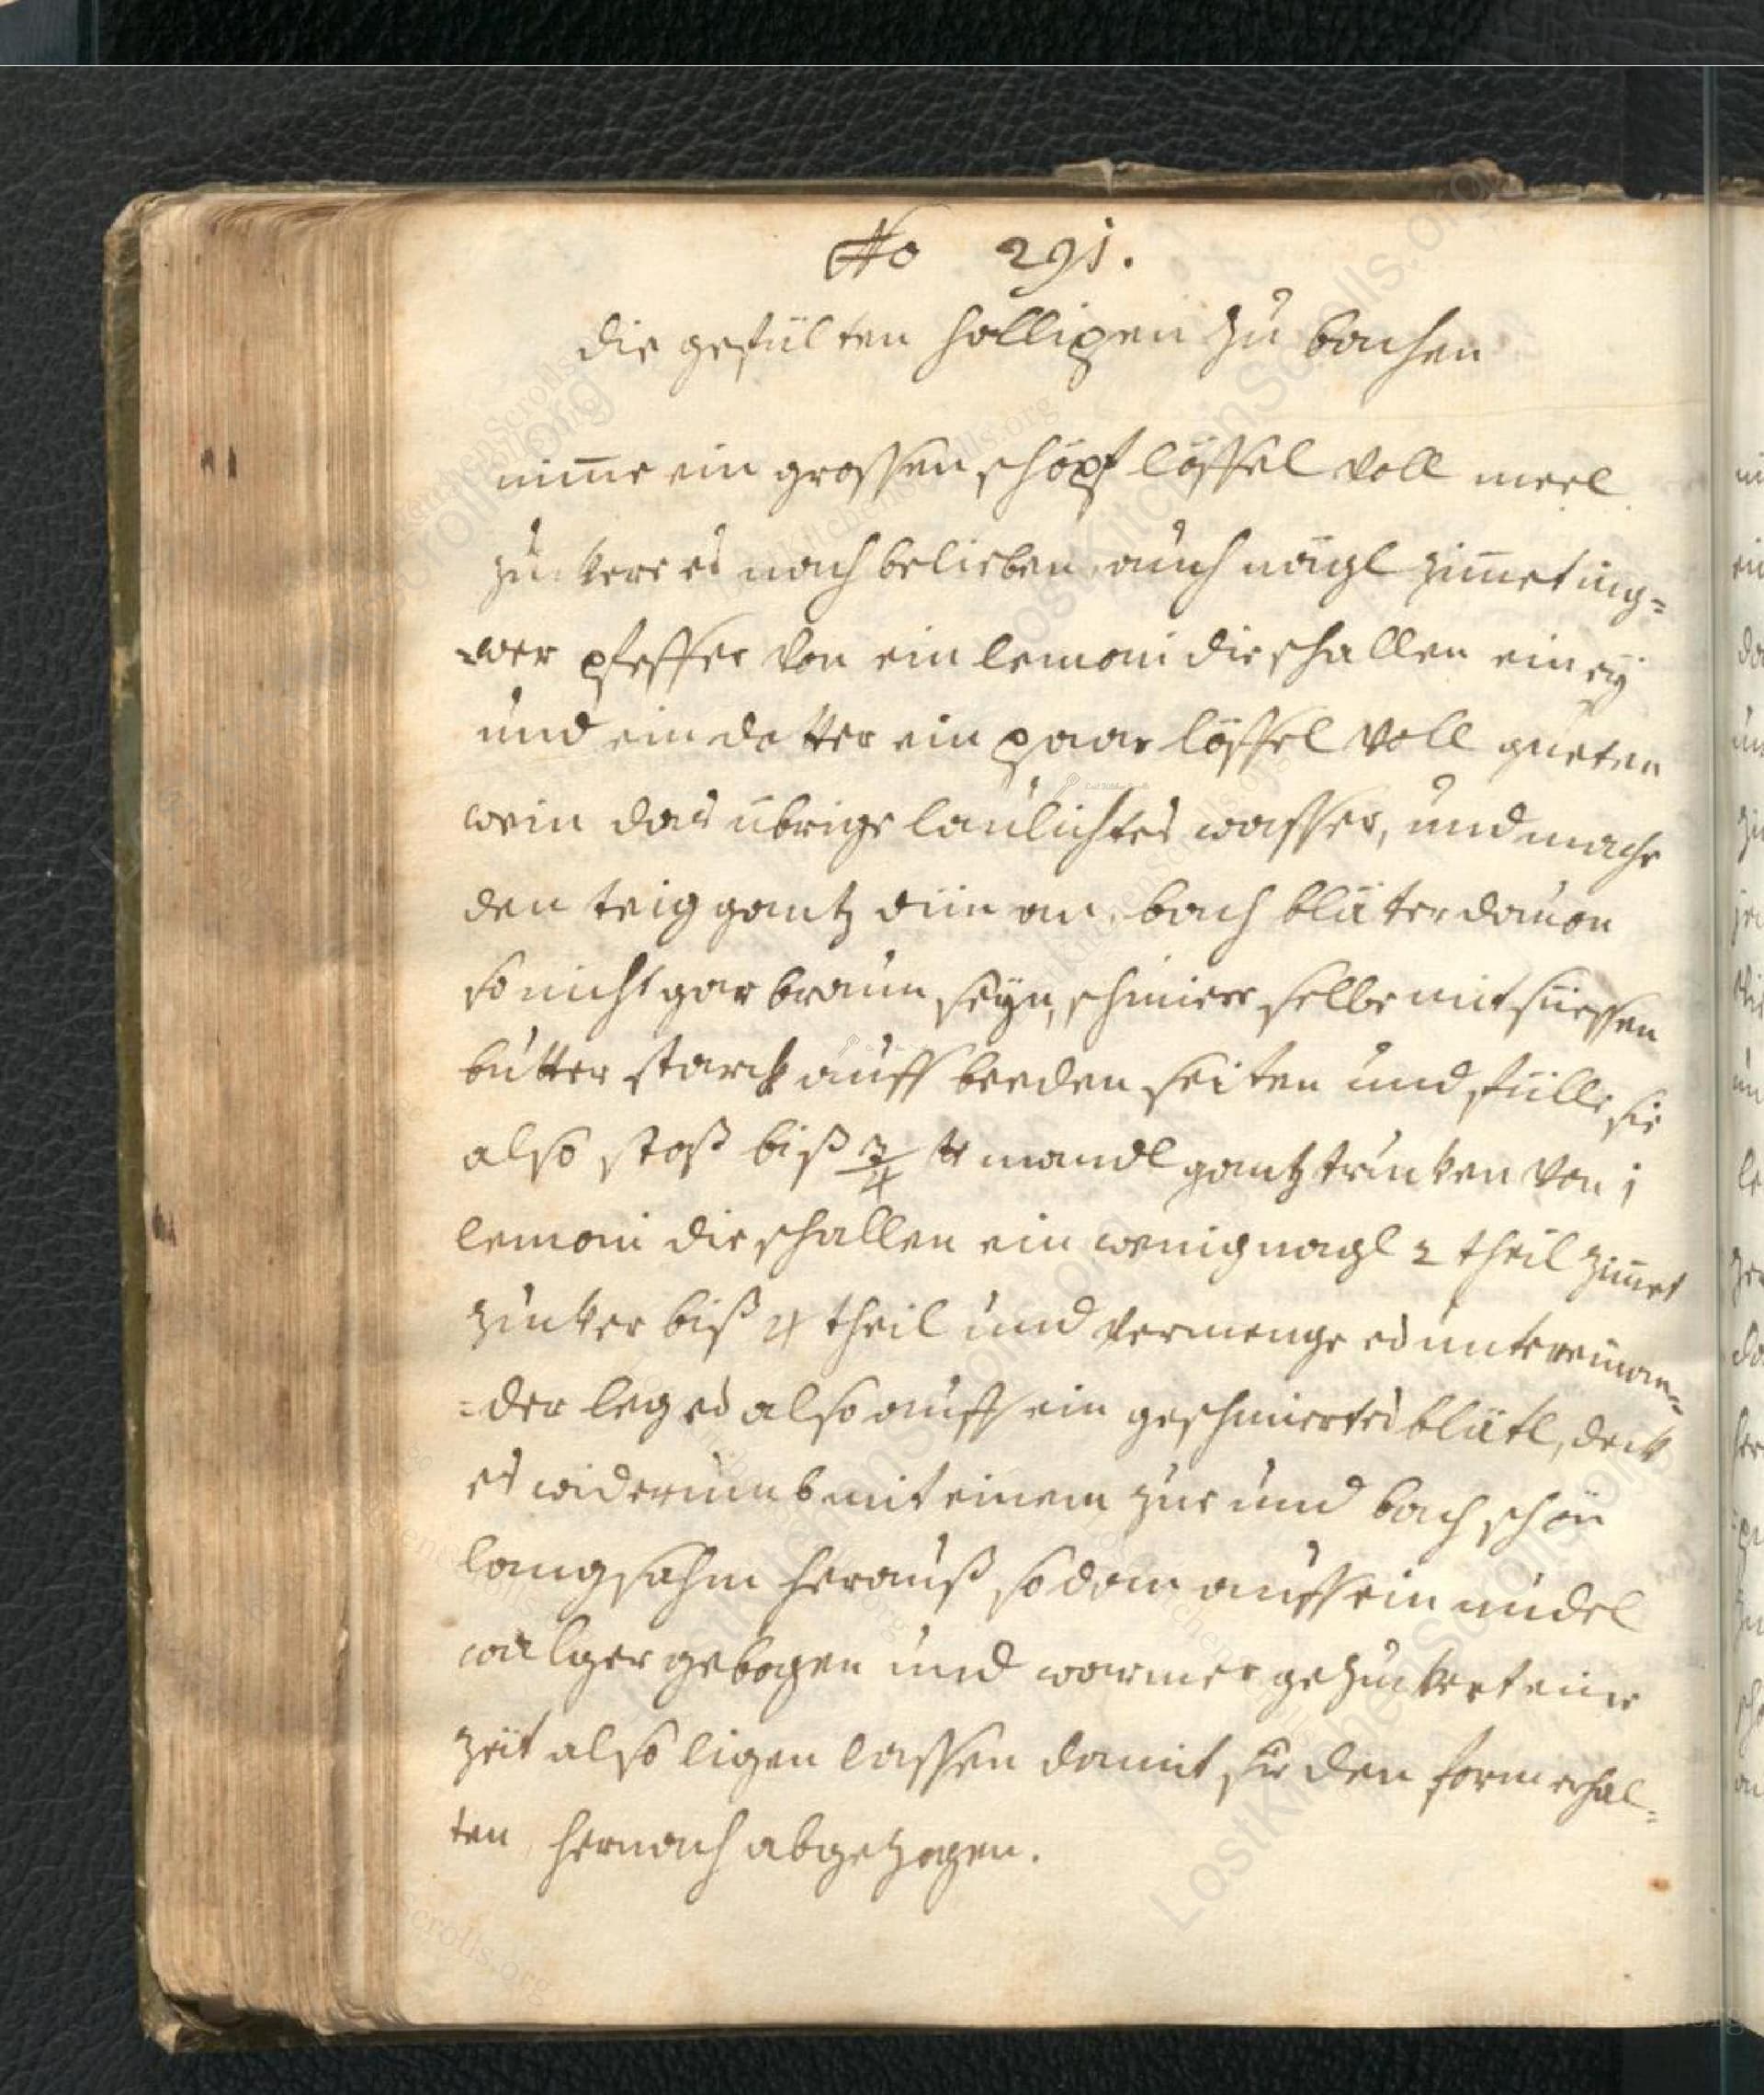 No 291.
die gefülten hollipen zu bachen
nime ein grossen schöpf löffel voll meel
zuckere es nach belieben, auch nägl zimet ing=
=wer pfeffer von ein lemoni die schallen ein eÿ
und ein dotter ein paar löffel voll gueten
wein das übrige laulichtes wasser, und mache
den teig gantz dün an, bach bläter dauon
so nicht gar braun seÿn, schmiere selbe mit süessen
butter starck auff beeden seiten und fülle sie
also stoß biß 3/4 ℔ mandl gantz trucken von 1
lemoni die schallen ein wenig nagl 2 theil zimet
zucker biß 4 theil und vermenge es untereinan=
=der leg es also auff ein geschmiertes blätl, deck
es widerumb mit einem zue und bach schön
langsahm herauß, so dan auff ein nudel
walger gebogen und warmer gezuckert eine
zeit also ligen lassen damit sie den form erhal=
ten, hernach abgezogen.